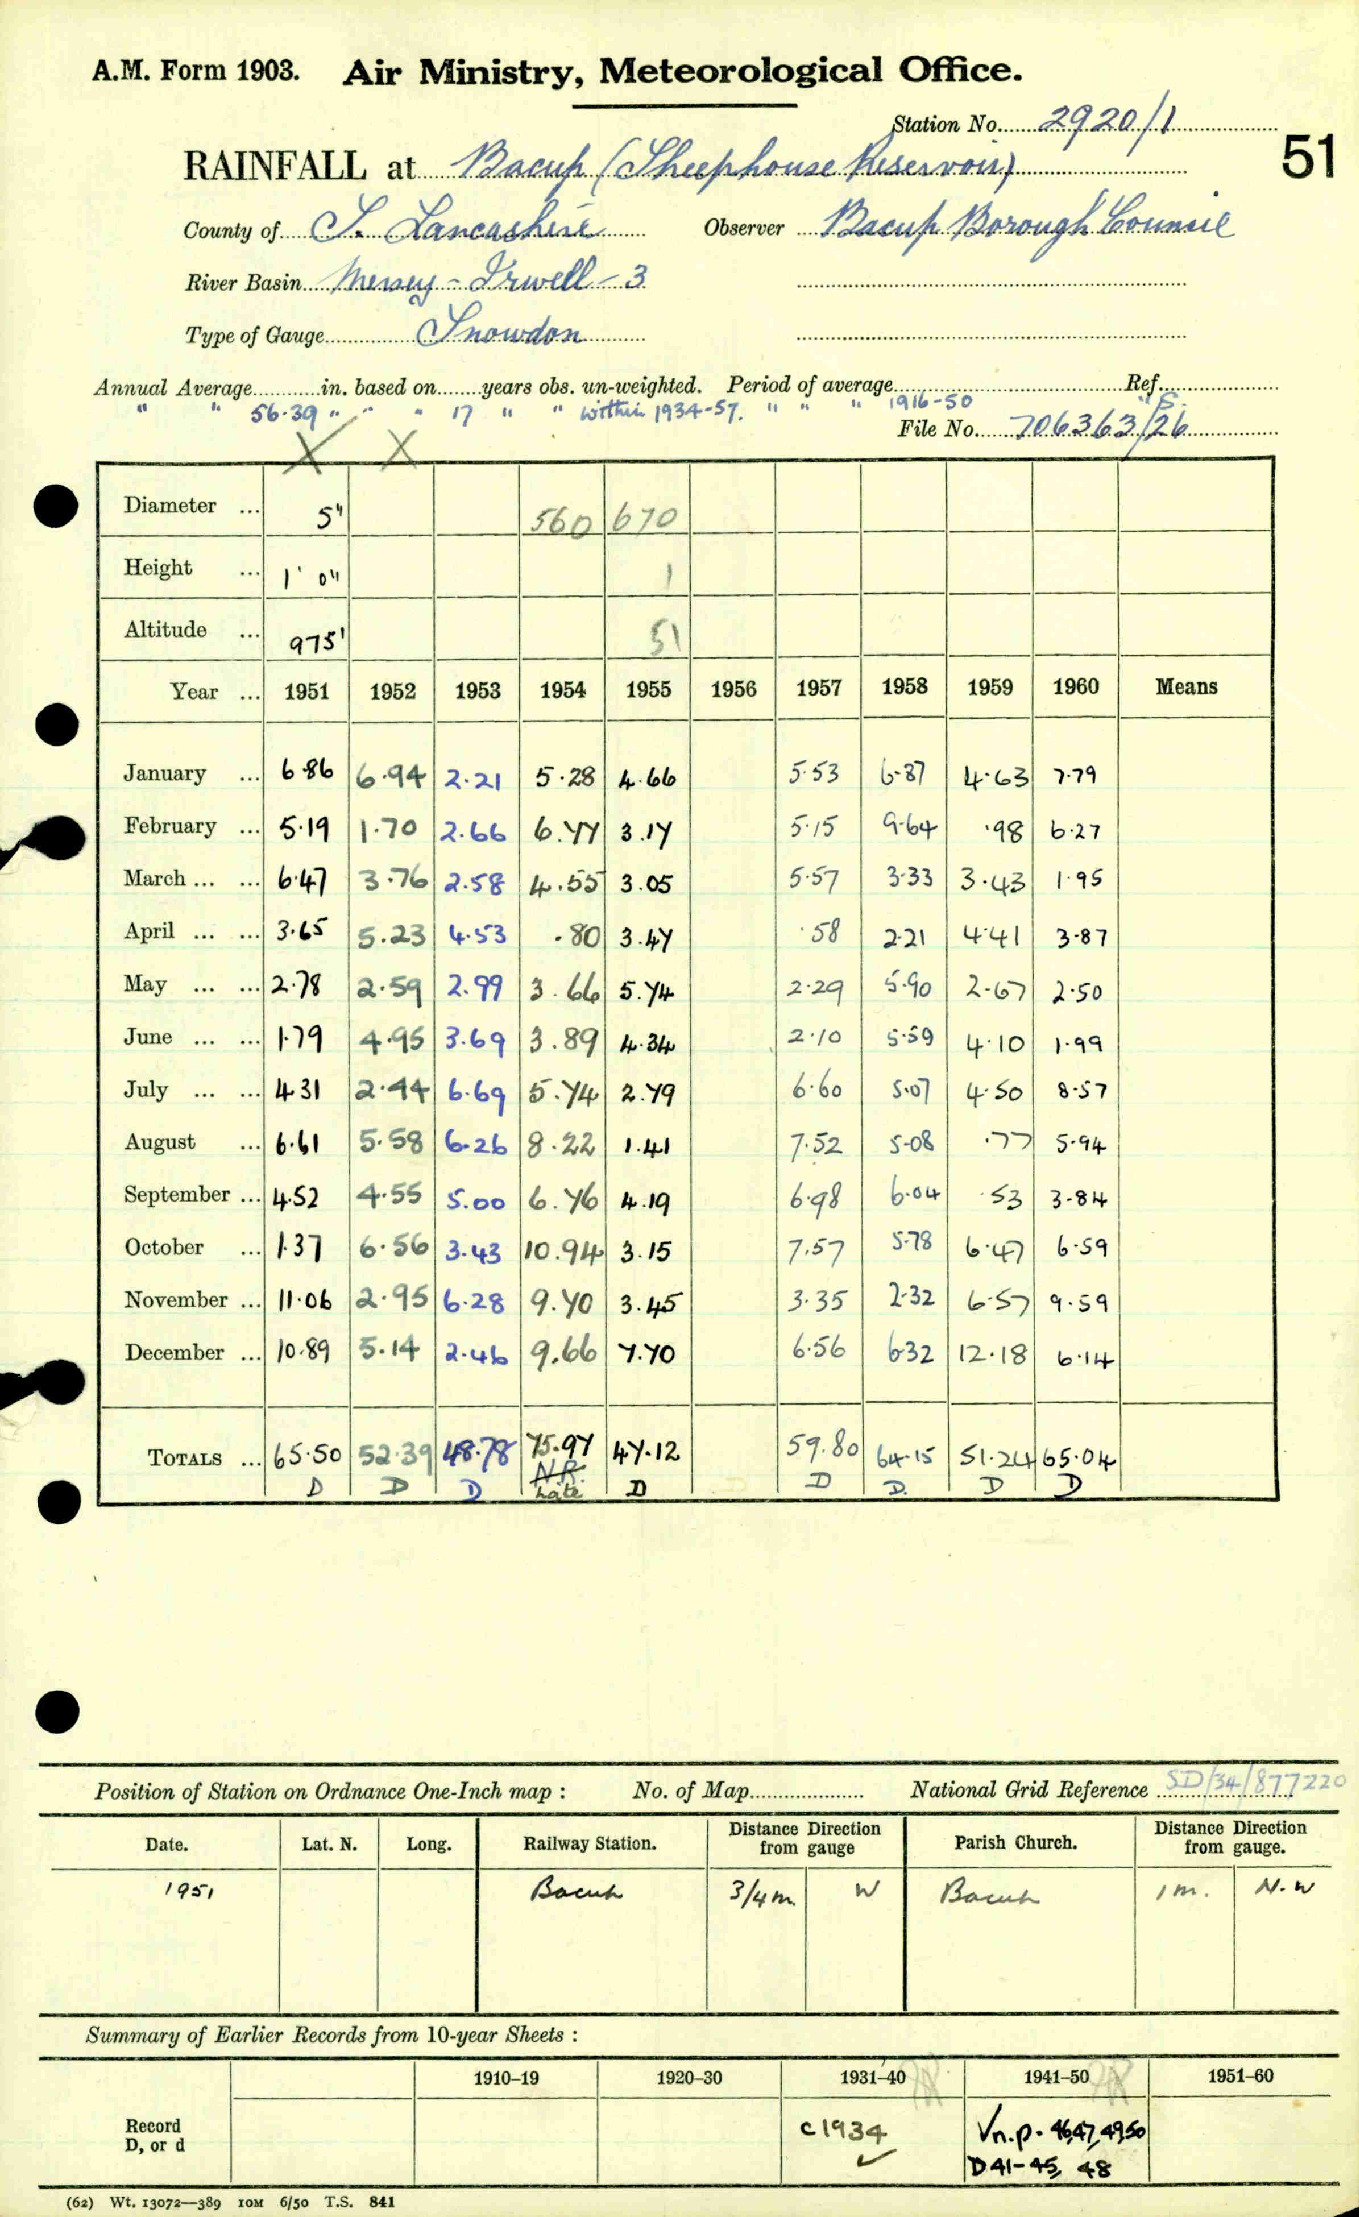 A.M. Form 1903. Air Ministry, Meteorological Office.
Station No. 2920/1
51
RAINFALL at Bacup (Sheephouse Reservoir)
County of S. Lancashire Observer Bacup Borough Council
River Basin Mersey - Irwell - 3
Type of Gauge Snowdon
Annual Average in. based on years obs. un-weighted. Period of average Ref.
" " 56.39 " " " 17 " " within 1934-57. " " " 1916-50 "S.
File No. 706363/26
X X
Diameter ... 5" 560 670
Height ... 1' 0" 1
Altitude ... 975' 51
Year ... 1951 1952 1953 1954 1955 1956 1957 1958 1959 1960 Means
January ... 6.86 6.94 2.21 5.28 4.66 5.53 6.87 4.63 7.79
February ... 5.19 1.70 2.66 6.77 3.17 5.15 9.64 .98 6.27
March ... ... 6.47 3.76 2.58 4.55 3.05 5.57 3.33 3.43 1.95
April ... ... 3.65 5.23 4.53 .80 3.47 .58 2.21 4.41 3.87
May ... ... 2.78 2.59 2.99 3.66 5.74 2.29 5.90 2.67 2.50
June ... ... 1.79 4.95 3.69 3.89 4.34 2.10 5.59 4.10 1.99
July ... ... 4.31 2.44 6.69 5.74 2.79 6.60 5.07 4.50 8.57
August ... 6.61 5.58 6.26 8.22 1.41 7.52 5.08 .77 5.94
September ... 4.52 4.55 5.00 6.76 4.19 6.98 6.04 .53 3.84
October ... 1.37 6.56 3.43 10.94 3.15 7.57 5.78 6.47 6.59
November ... 11.06 2.95 6.28 9.70 3.45 3.35 2.32 6.57 9.59
December ... 10.89 5.14 2.46 9.66 7.70 6.56 6.32 12.18 6.14
TOTALS ... 65.50 52.39 48.78 75.97 47.12 59.80 64.15 51.24 65.04
N.R.
D D D Late D D D. D D
Position of Station on Ordnance One-Inch map : No. of Map National Grid Reference SD/34/877220
Date. Lat. N. Long. Railway Station. Distance from gauge Direction Parish Church. Distance from gauge. Direction
1951 Bacup 3/4 m. W Bacup 1 m. N.W
Summary of Earlier Records from 10-year Sheets :
1910-19 1920-30 1931-40 1941-50 1951-60
Record
D, or d
c1934 ✓
Vn.p. 46,47,49,50
D 41-45, 48
(62) Wt. 13072—389 10M 6/50 T.S. 841